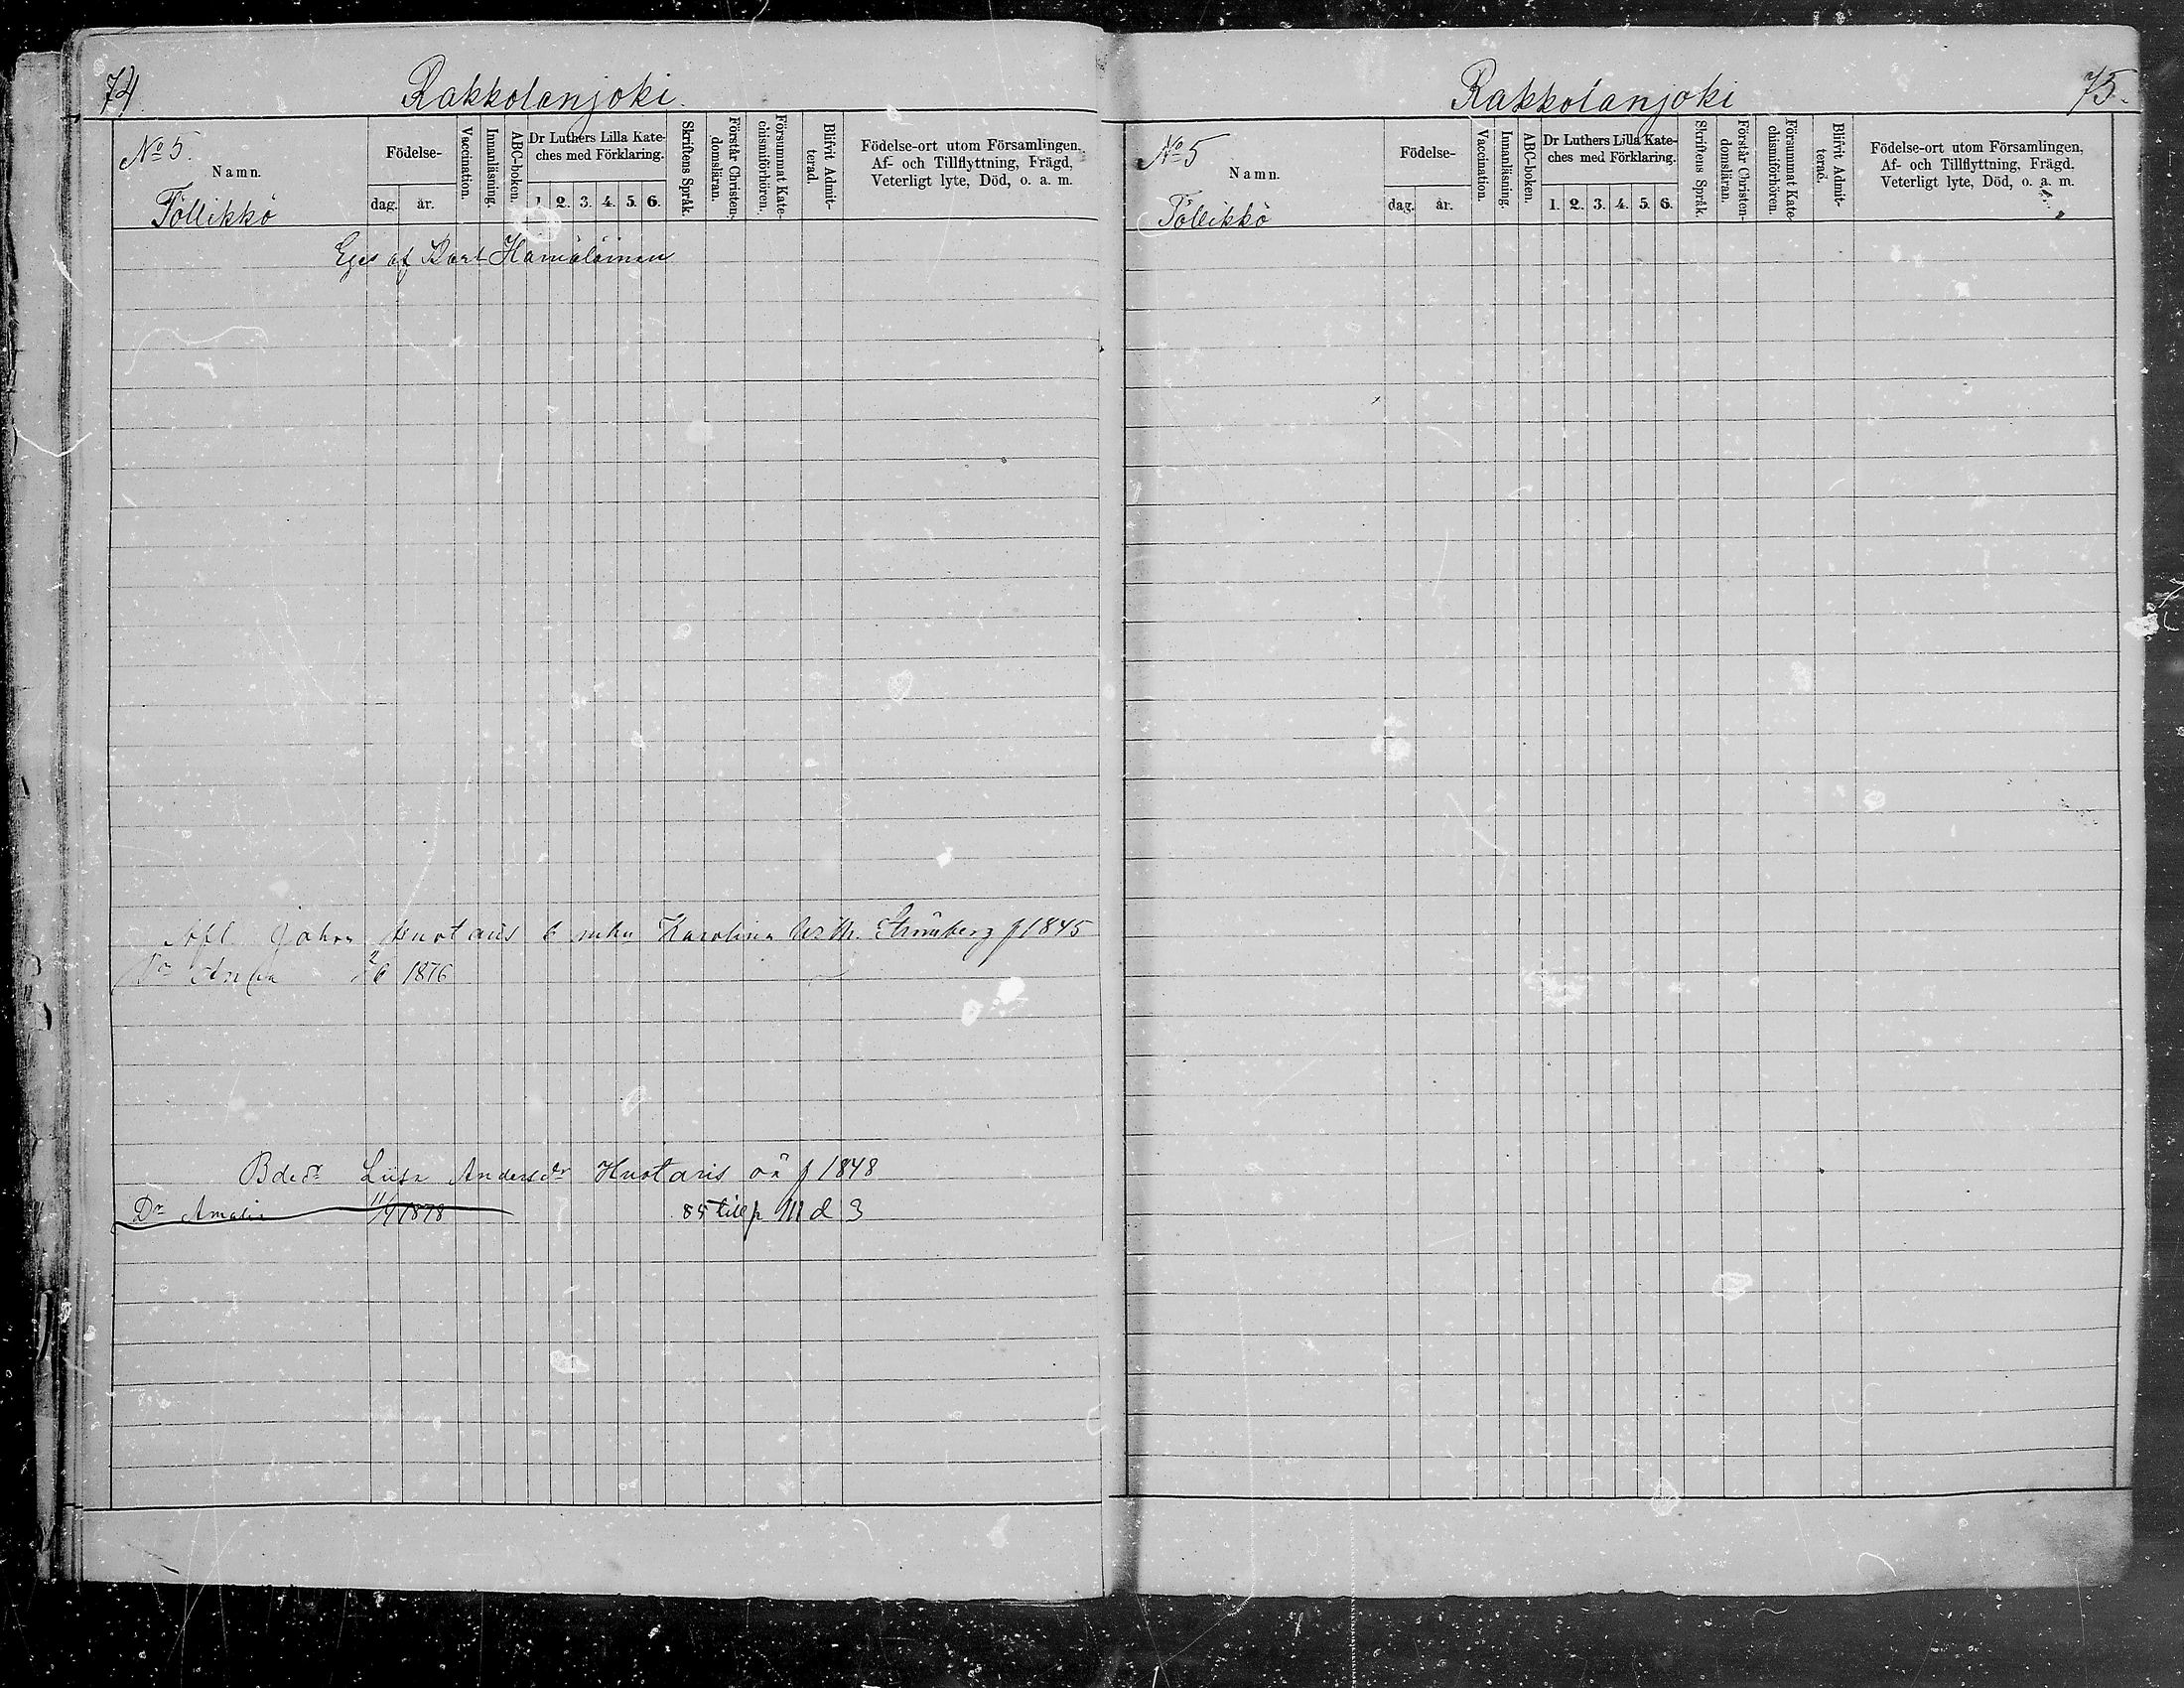 74.
Rakkolanjoki.
No 5.
Namn.
Töllikkö
Födelse-
dag.
år.
Vaccination.
Innanläsning.
ABC-boken.
Dr Luthers Lilla Kate-
ches med Förklaring.
1. 2. 3. 4. 5. 6.
Skriftens Språk.
Förstår Christen-
domsläran.
Försummat Kate-
chismiförhören.
Blifvit Admit-
terad.
Födelse-ort utom Församlingen,
Af- och Tillflyttning, Frägd,
Veterligt lyte, Död, o. a. m.
Eges af Karl Hämäläinen
Afl. Johan Huotaris e enka Karolina Strömberg f 1845
Dr 1876
Bded:r Liisa Andersdr Huotaris oä f 1848
Dr Amalia 11/4 1878 85 till p 111 d 3
Rakkolanjoki
75.
No 5
Namn.
Töllikkö
Födelse-
dag.
år.
Vaccination.
Innanläsning.
ABC-boken.
Dr Luthers Lilla Kate-
ches med Förklaring.
1. 2. 3. 4. 5. 6.
Skriftens Språk.
Förstår Christen-
domsläran.
Försummat Kate-
chismiförhören.
Blifvit Admit-
terad.
Födelse-ort utom Församlingen,
Af- och Tillflyttning, Frägd.
Veterligt lyte, Död, o. a. m.